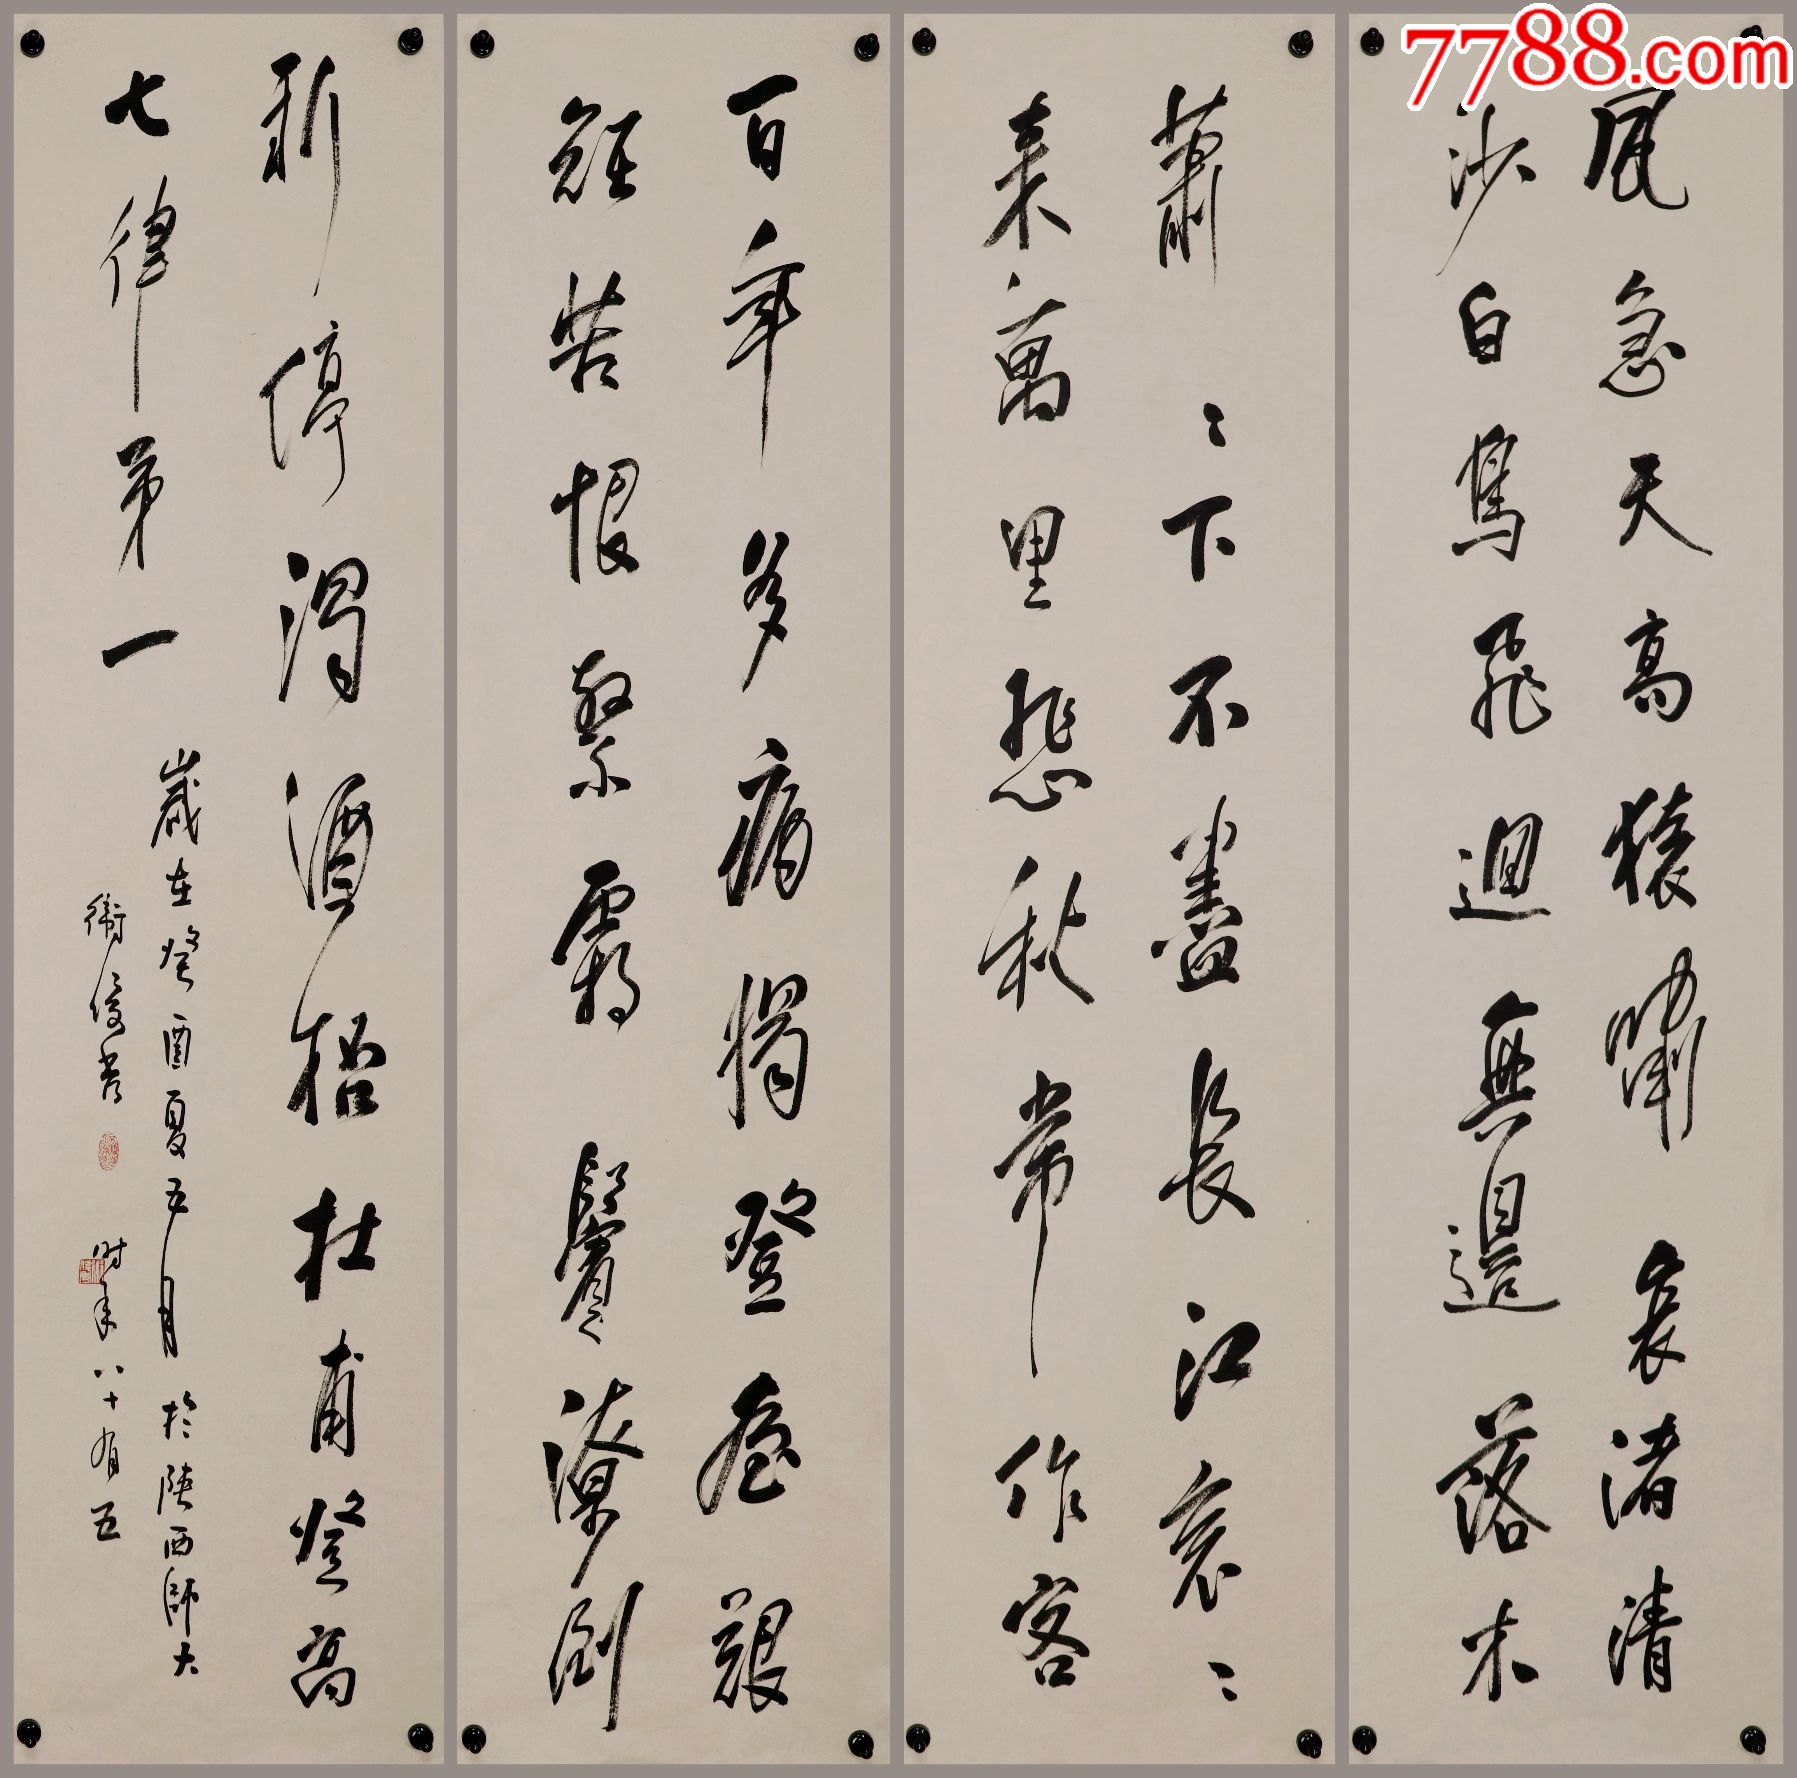 7788.com
風急天高猿嘯哀渚清
沙白鳥飛迴無邊落木
蕭〻下不盡長江衮〻
来萬里悲秋常作客
百年多病獨登臺艱
難苦恨繁霜鬢潦倒
新停濁酒桮杜甫登高
七律第一
歲在癸酉夏五月於陝西師大
衛俊秀時年八十有五